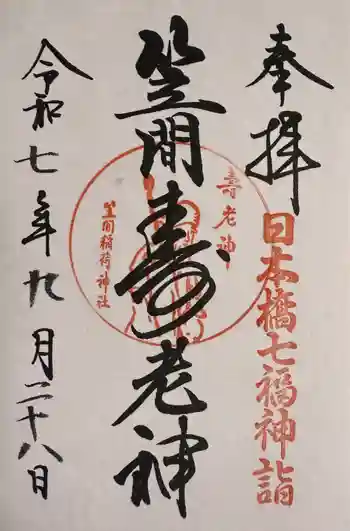 奉拝
日本橋七福神詣
笠間寿老神
壽老神
笠間稲荷神社
令和七年九月二十八日